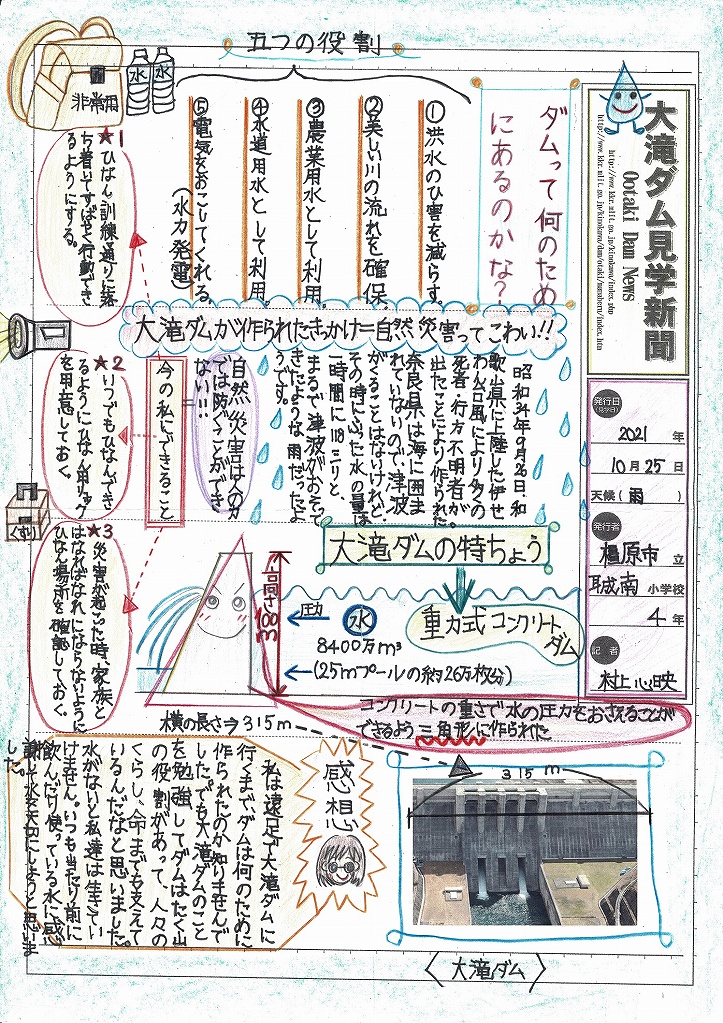 大滝ダム見学新聞
Ootaki Dam News
http://www.kkr.mlit.go.jp/kinokawa/index.php
発行日
(見学日)
2021 年
10月25日
天候(雨)
発行者
橿原市 立
耳成南 小学校
4 年
記者
村上心映
ダムって何のため
にあるのかな?
五つの役割
①洪水のひ害を減らす。
②美しい川の流れを確保。
③農業用水として利用。
④水道用水として利用。
⑤電気をおこしてくれる。
(水力発電)
水
水
非常用
★1
ひなん訓練通りに落
ち着いてすばやく行動でき
るようにする。
大滝ダムが作られたきっかけ=自然災害ってこわい!!
昭和34年9月26日・和
歌山県に上陸した伊せ
わん台風により多くの
死者・行方不明者が
出たことにより作られた。
奈良県は海に囲ま
れていないので、津波
がくることはないけれど、
その時にふった水の量は
一時間に118ミリと、
まるで津波がおそって
きたような雨だったよ
うです。
自然災害は人の力
では防ぐことができ
ない!!
今の私にできること
★2
いつでもひなんでき
るようにひなん用リュック
を用意しておく。
★3
災害が起こった時、家族と
はなればなれにならないように
ひなん場所を確認しておく。
くすり
大滝ダムの特ちょう
重力式コンクリート
ダム
高さ100m
圧力
水
8400万m³
(25mプールの約26万枚分)
横の長さ⇒315m
コンクリートの重さで水の圧力をおさえることが
できるよう三角形に作られた
315m
〈大滝ダム〉
感想
私は遠足で大滝ダムに
行くまでダムは何のために
作られたのか知りませんで
した。でも大滝ダムのこと
を勉強してダムはたく山
の役割があって、人々の
くらし、命までも支えて
いるんだなと思いました。
水がないと私達は生きてい
けません。いつも当たり前に
飲んだり使っている水に、感
謝して水を大切にしようと思いま
した。